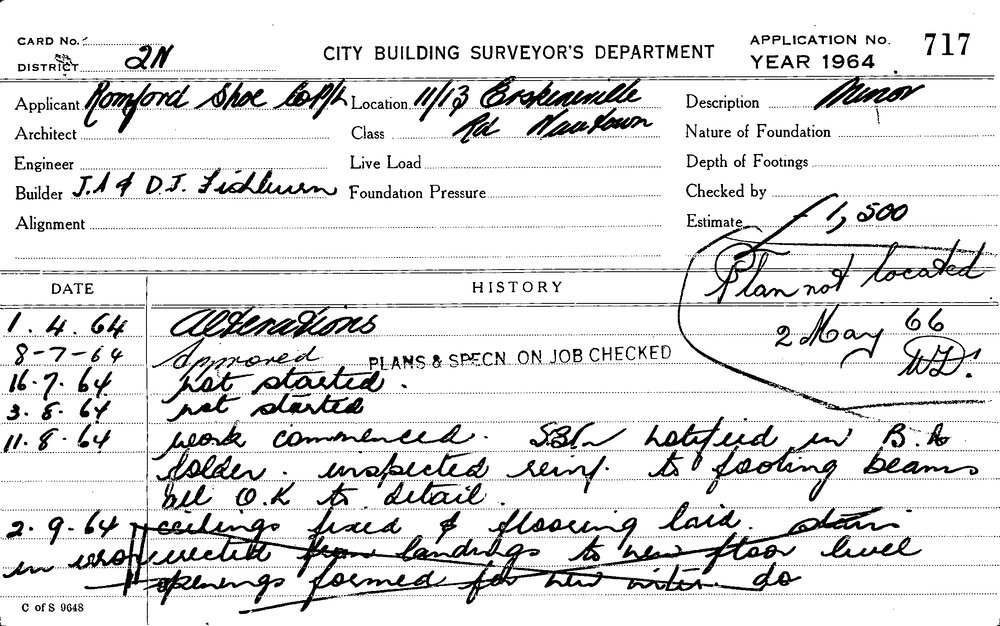 CARD No.
DISTRICT 2N
CITY BUILDING SURVEYOR'S DEPARTMENT
APPLICATION No. 717
YEAR 1964
Applicant Romford Shoe Co P/L Location 11/13 Erskineville Description Minor
Architect Class Rd Newtown Nature of Foundation
Engineer Live Load Depth of Footings
Builder J.A & D.J. Fishburn Foundation Pressure Checked by
Alignment Estimate 1,500
Plan not located
2 May 66
DATE HISTORY
1.4.64 Alterations
8-7-64 Approved PLANS & SPECN. ON JOB CHECKED
16.7.64 not started.
3.8.64 not started
11.8.64 work commenced. notified in B.A
folder. inspected reinf. to footing beams
all O.K to detail.
2.9.64 ceilings fixed & flooring laid. stairs
in erected from landings to new floor level
openings formed for new do
C of S 9648